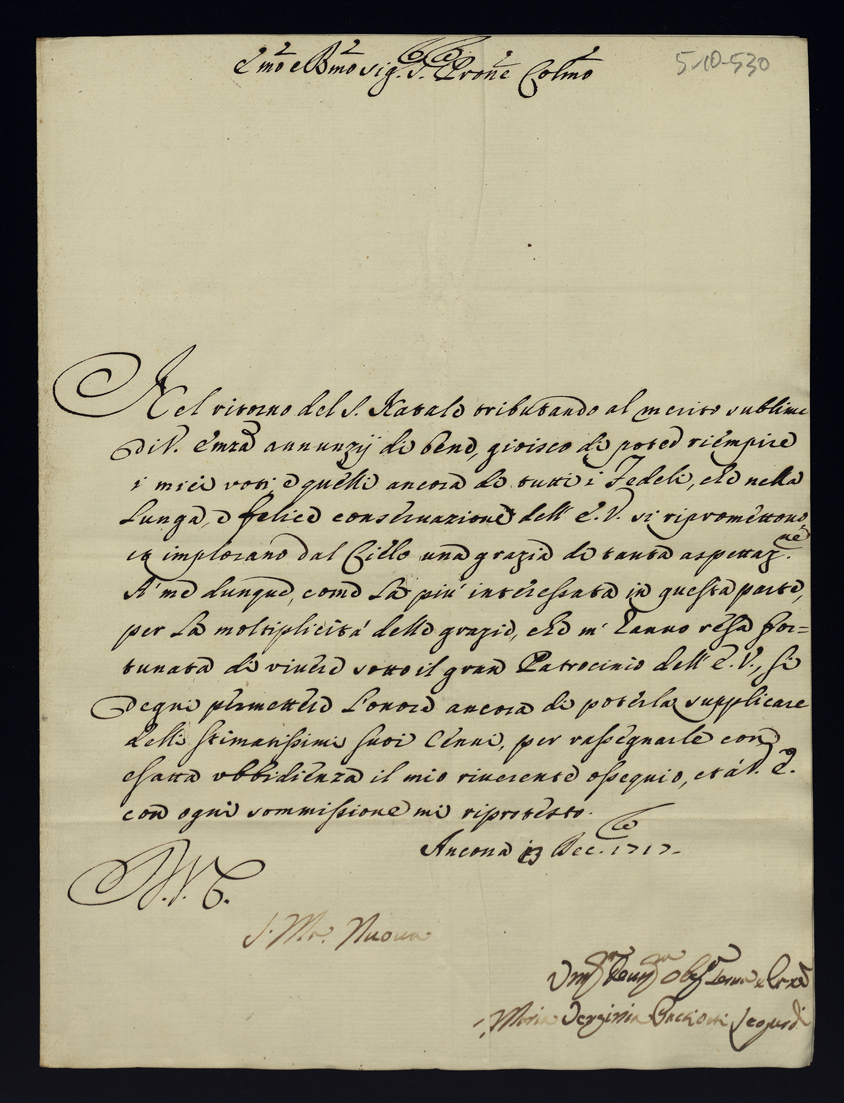 E.mo e R.mo Sig.r S.r Prone Colmo
5-10-530
Nel ritorno del S. Natale tributando al merito sublime
di V. Emza annunzij di bene, gioisco di poter riempire
i miei voti, e quelli ancora di tutti i Fedeli, che nella
lunga, e felice conservazione dell' E.V. si ripromettono,
et implorano dal Cielo una grazia di tanta aspettaz.ne
A' me dunque, come la più interessata in questa parte,
per la moltiplicità delle grazie, che m' hanno resa for=
tunata di vivere sotto il gran Patrocinio dell' E.V., si
degni permettere l'onore ancora di poterla supplicare
delli stimatissimi suoi Cenni, per rassegnarle con
esatta ubbidienza il mio riverente ossequio, et à V. E.
con ogni sommissione mi riprotesto.
Ancona 13 Dec.bre 1717.
D.V.E.
S. M.a Nuova
Maria Verginia